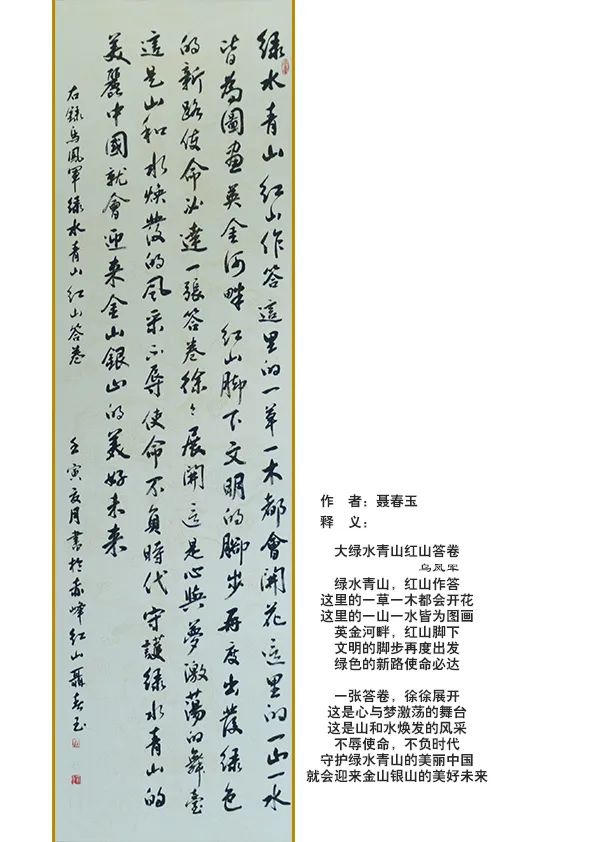 绿水青山红山作答這里的一草一木都會開花這里的一山一水
皆為圖畫英金河畔红山脚下文明的脚步再度出發绿色
的新路使命必達一張答卷徐々展開這是心與夢激蕩的舞臺
這是山和水焕發的風采不辱使命不負時代守護绿水青山的
美麗中國就會迎来金山銀山的美好未来
右錄乌鳳軍绿水青山红山答卷
壬寅亥月書於赤峰红山聂春玉
作 者：聂春玉
释 义：
大绿水青山红山答卷
乌凤军
绿水青山，红山作答
这里的一草一木都会开花
这里的一山一水皆为图画
英金河畔，红山脚下
文明的脚步再度出发
绿色的新路使命必达
一张答卷，徐徐展开
这是心与梦激荡的舞台
这是山和水焕发的风采
不辱使命，不负时代
守护绿水青山的美丽中国
就会迎来金山银山的美好未来